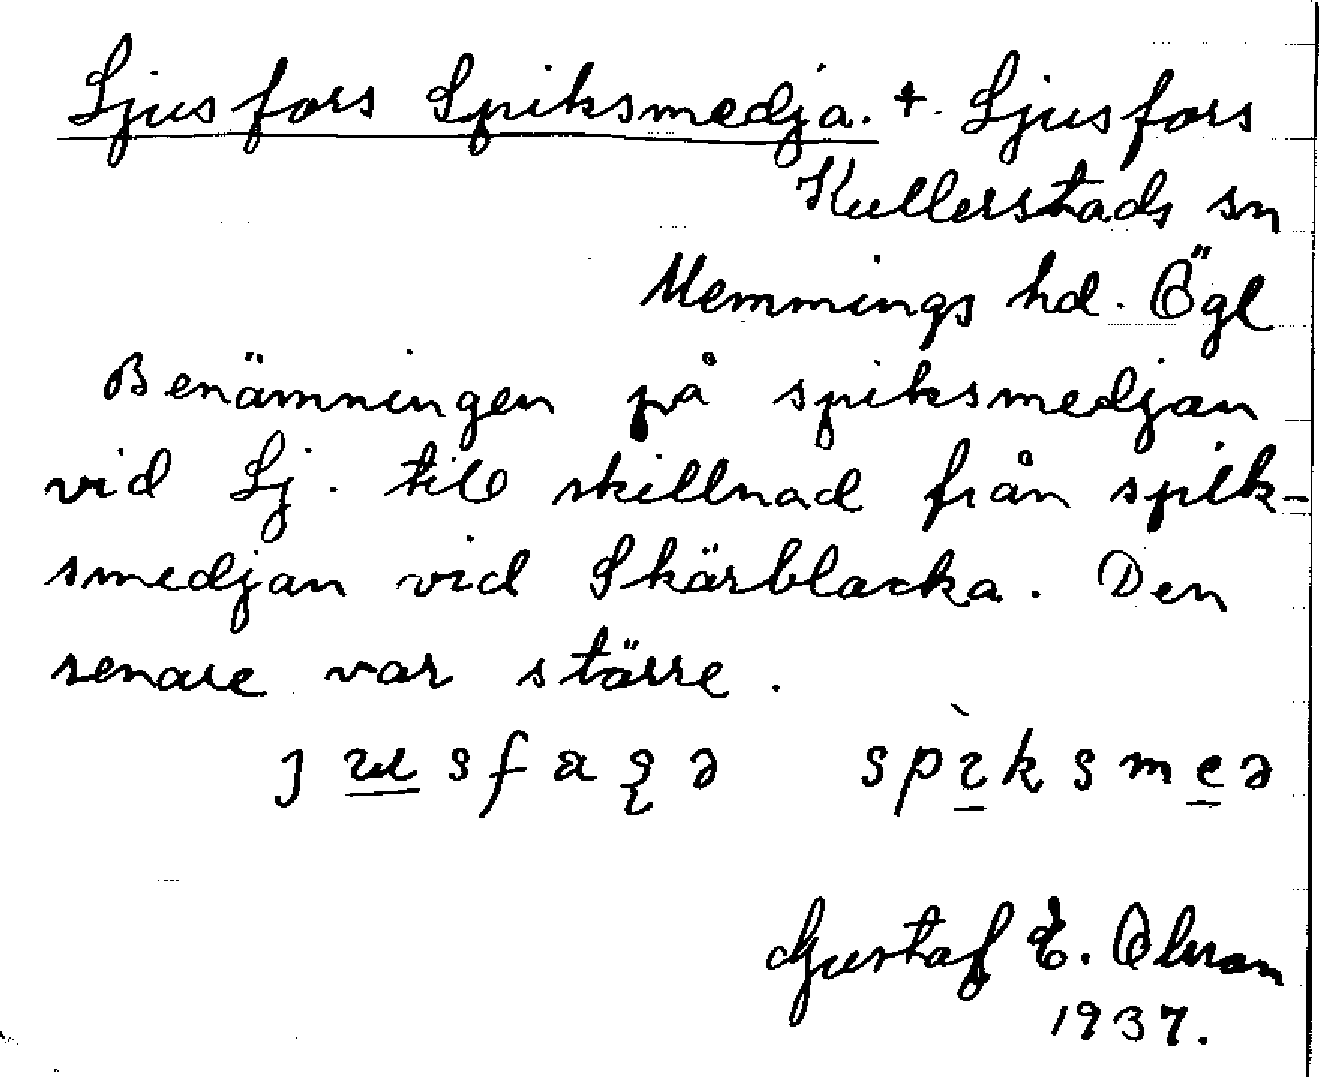 Ljusfors Spiksmedja. + Ljusfors
Kullerstads sn
Memmings hd. Ögl
Benämningen på spiksmedjan
vid Lj. till skillnad från spik-
smedjan vid Skärblacka. Den
senare var större.
spìksmeə
Gustaf E.
1937.